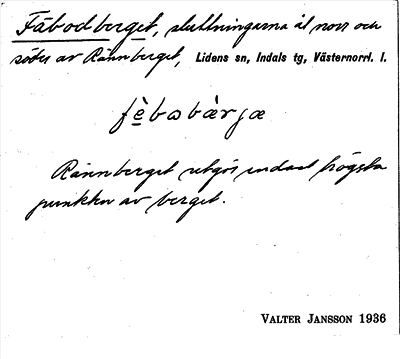 Fäbodberget, sluttningarna åt norr och
söder av Rännberget, Lidens sn, Indals tg, Västernorrl. l.
fè̱bωbàrjæ
Rännberget utgör endast högsta
punkten av berget.
VALTER JANSSON 1936